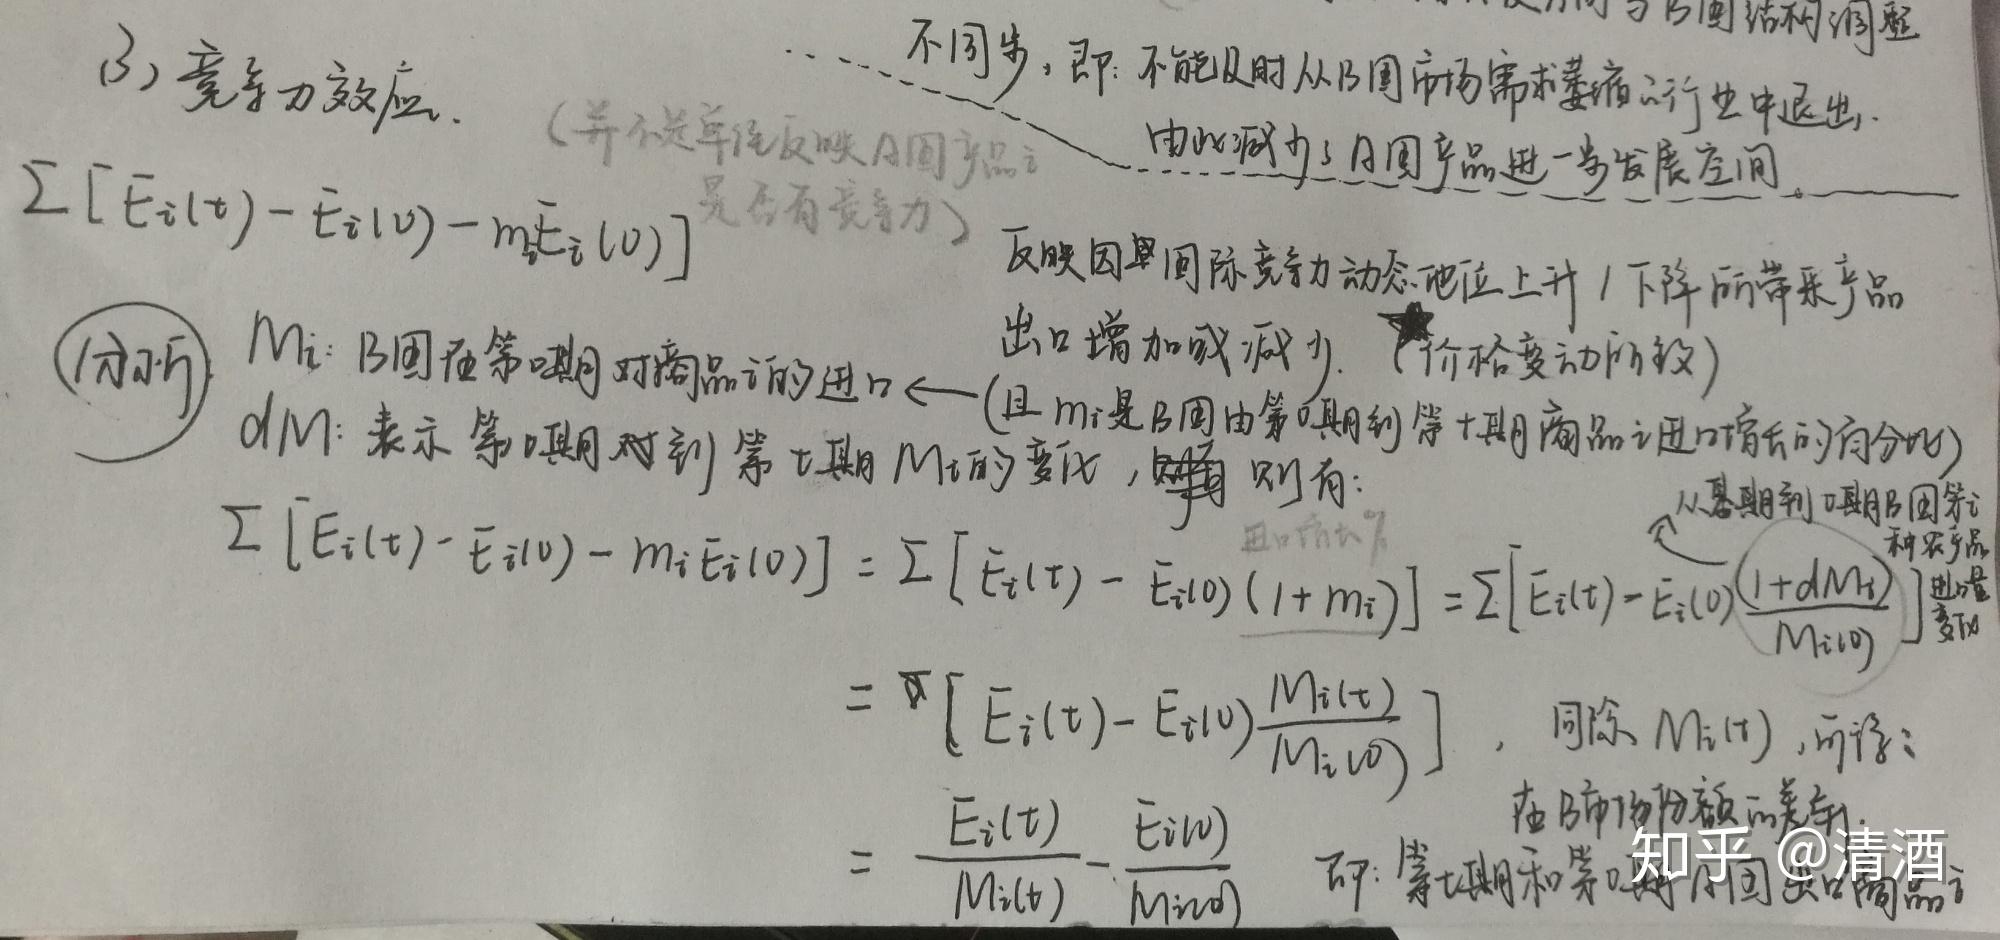 与B国结构调整
不同步，即：不能及时从B国市场需求萎缩的行业中退出.
由此减少了A国产品进一步发展空间。
(3) 竞争力效应.
(并不是单径反映A国产品i
是否有竞争力)
Σ[Ei(t)-Ei(0)-miEi(0)]
反映因国际竞争力动态地位上升/下降所带来产品
出口增加或减少. ★(价格变动所致)
分析
Mi: B国在第0期对商品i的进口 ← (且mi是B国由第0期到第t期商品i进口增长的百分比)
dM: 表示第0期到第t期Mi的变化，则有:
从基期到0期B国第i
种农产品
进口量
变化
进口增长%
Σ[Ei(t)-Ei(0)-miEi(0)] = Σ[Ei(t)-Ei(0)(1+mi)] = Σ[Ei(t)-Ei(0)(1+dMi)/Mi(0)]
= [Ei(t)-Ei(0)Mi(t)/Mi(0)]，同除Mi(t),所得:
= Ei(t)/Mi(t) - Ei(0)/Mi(0)
即: 第t期和第0期A国出口商品i
在B市场份额的差额.
知乎 @清酒